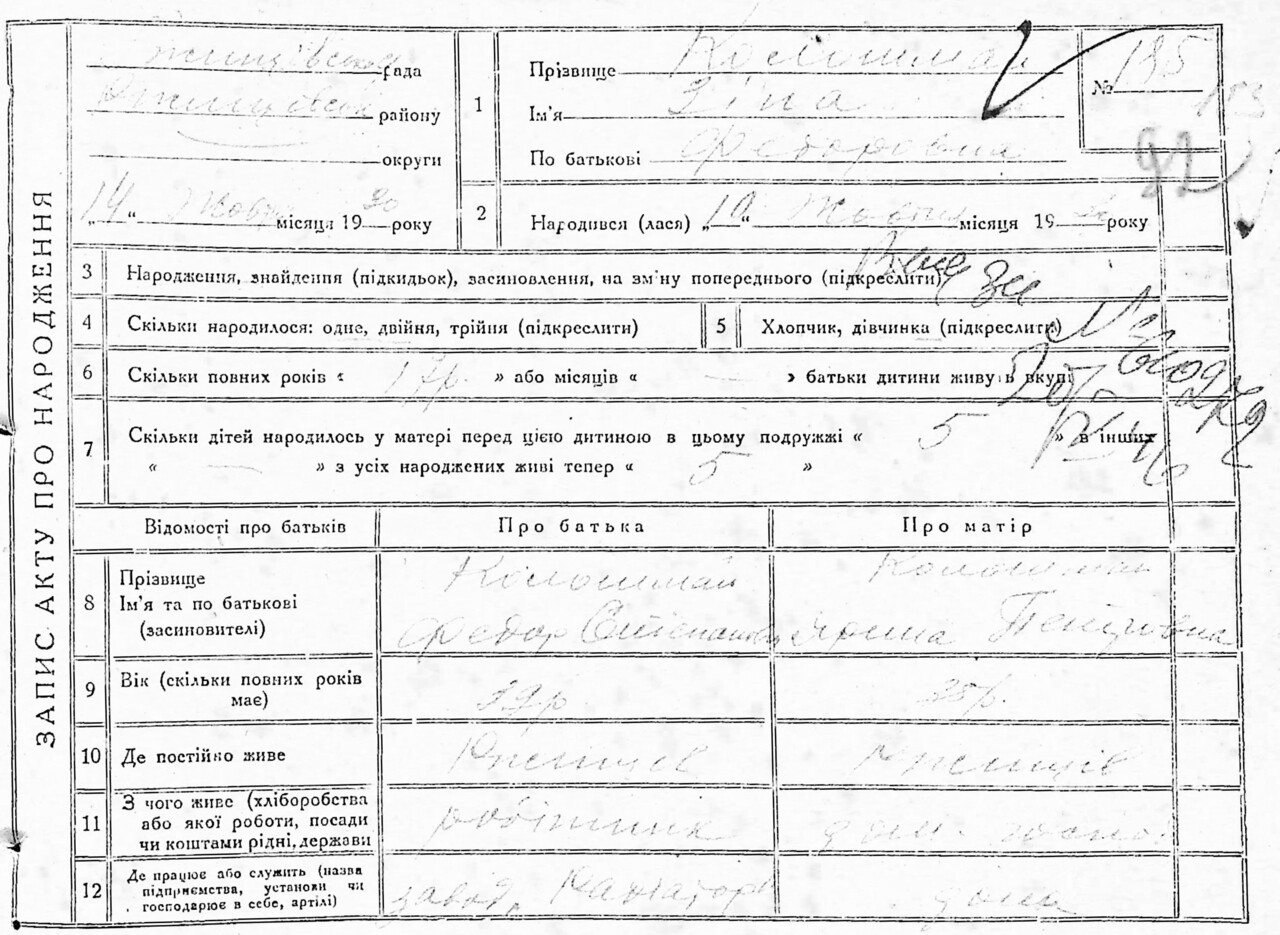 ЗАПИС АКТУ ПРО НАРОДЖЕННЯ
рада
району
округи
„14“ Жовт місяця 1930 року
1
Прізвище
Ім’я Зіна
По батькові Федоровна
№ 195
92
2
Народився (лася) „10“ Жовтня місяця 19 року
3
Народження, знайдення (підкидьок), засиновлення, на зміну попереднього (підкреслити)
4
Скільки народилося: одне, двійня, трійня (підкреслити)
5
Хлопчик, дівчинка (підкреслити)
6
Скільки повних років « 17р. » або місяців « — » батьки дитини живуть вкупі
7
Скільки дітей народилось у матері перед цією дитиною в цьому подружжі « 5 » в інших
« — » з усіх народжених живі тепер « 5 »
Відомості про батьків
Про батька
Про матір
8
Прізвище
Ім’я та по батькові
(засиновителі)
Федор Степанович
Петровна
9
Вік (скільки повних років
має)
10
Де постійно живе
Ржищів
Ржищів
11
З чого живе (хліборобства
або якої роботи, посади
чи коштами рідні, держави
робітник
дом. госпо.
12
Де працює або служить (назва
підприємства, установи чи
господарює в себе, артілі)
завод, Радіатор
дома